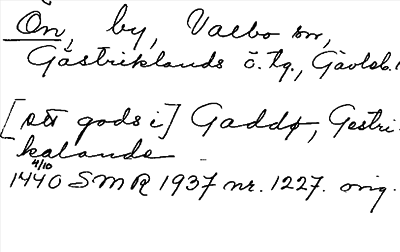 Ön, by, Valbo sn,
Gästriklands ö. tg., Gävleb. l
[ett gods i] Gaddø, Gestri-
kalande
4/10
1440 SMR 1937 nr. 1227. orig.